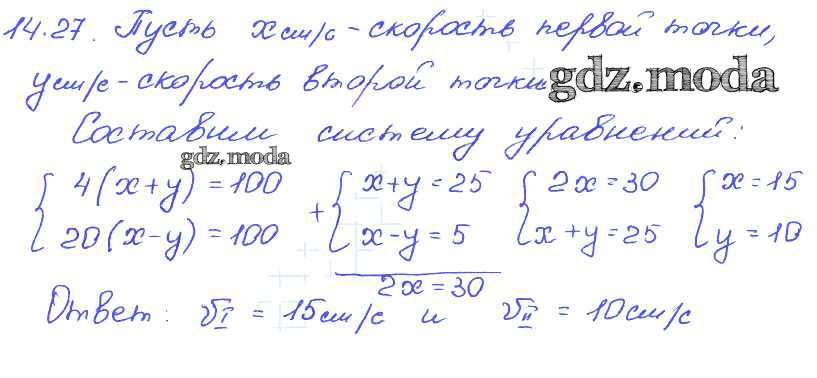 14.27. Пусть x см/с - скорость первой точки,
y см/с - скорость второй точки
gdz.moda
Составим систему уравнений:
gdz.moda
{ 4(x+y)=100 + { x+y=25 { 2x=30 { x=15
{ 20(x-y)=100 { x-y=5 { x+y=25 { y=10
2x=30
Ответ: v_I = 15 см/с и v_II = 10 см/с